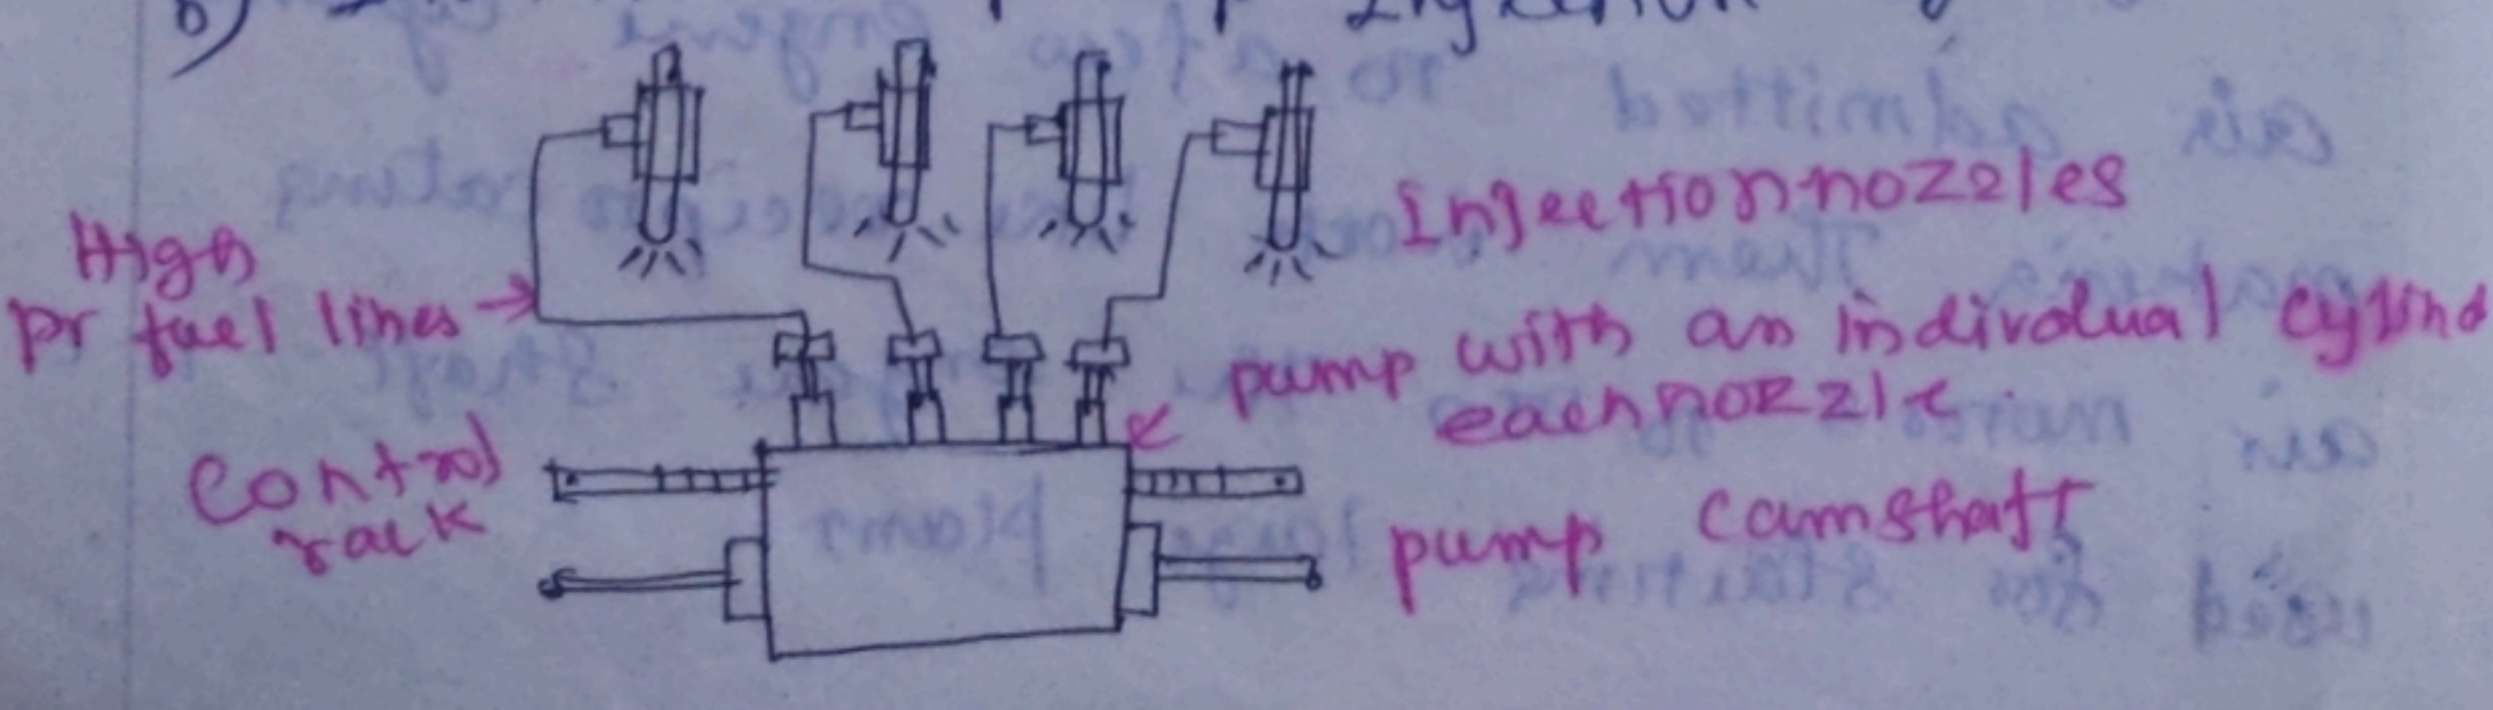 b)
Injection
High
Pr fuel lines →
Injection nozzles
pump with an indivdual cylind
each nozzle.
Control
rack
pump camshaft